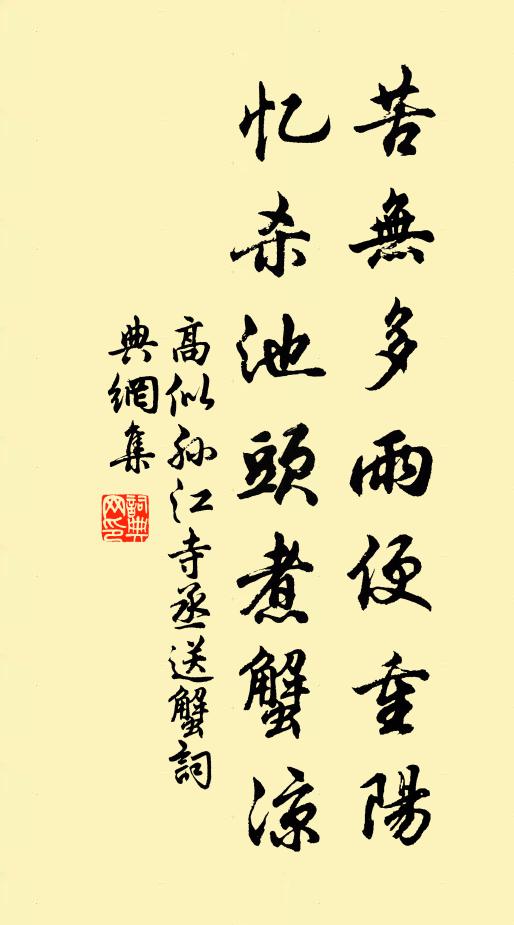 苦無多雨便重陽
忆杀池頭煮蟹涼
高似孙江寺丞送蟹詞
典網集
詞典網印